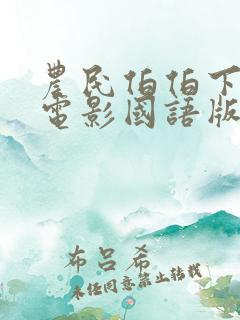 農民伯伯下
電影國語版
布呂希
未任同意禁止转载